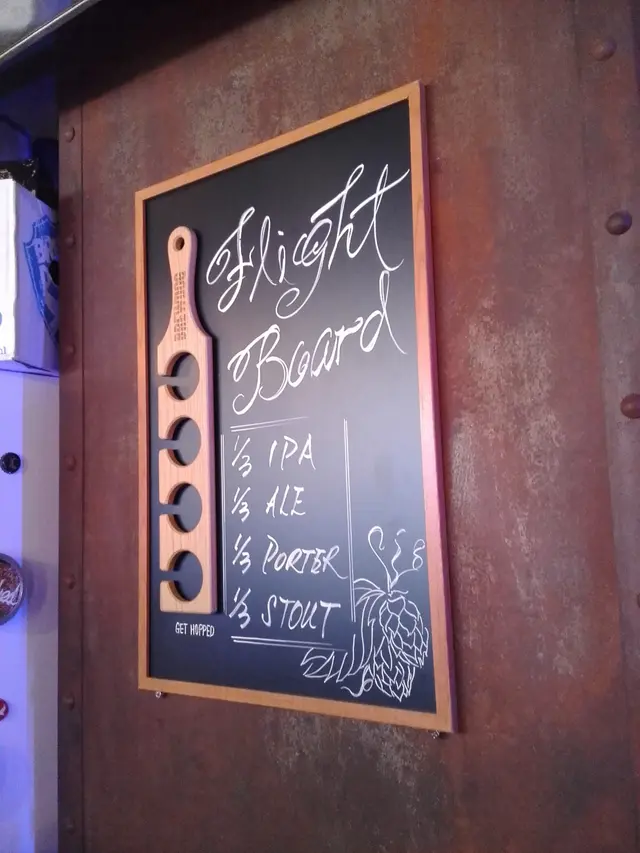 Flight
Board
1/3 IPA
1/3 ALE
1/3 PORTER
1/3 STOUT
GET HOPPED